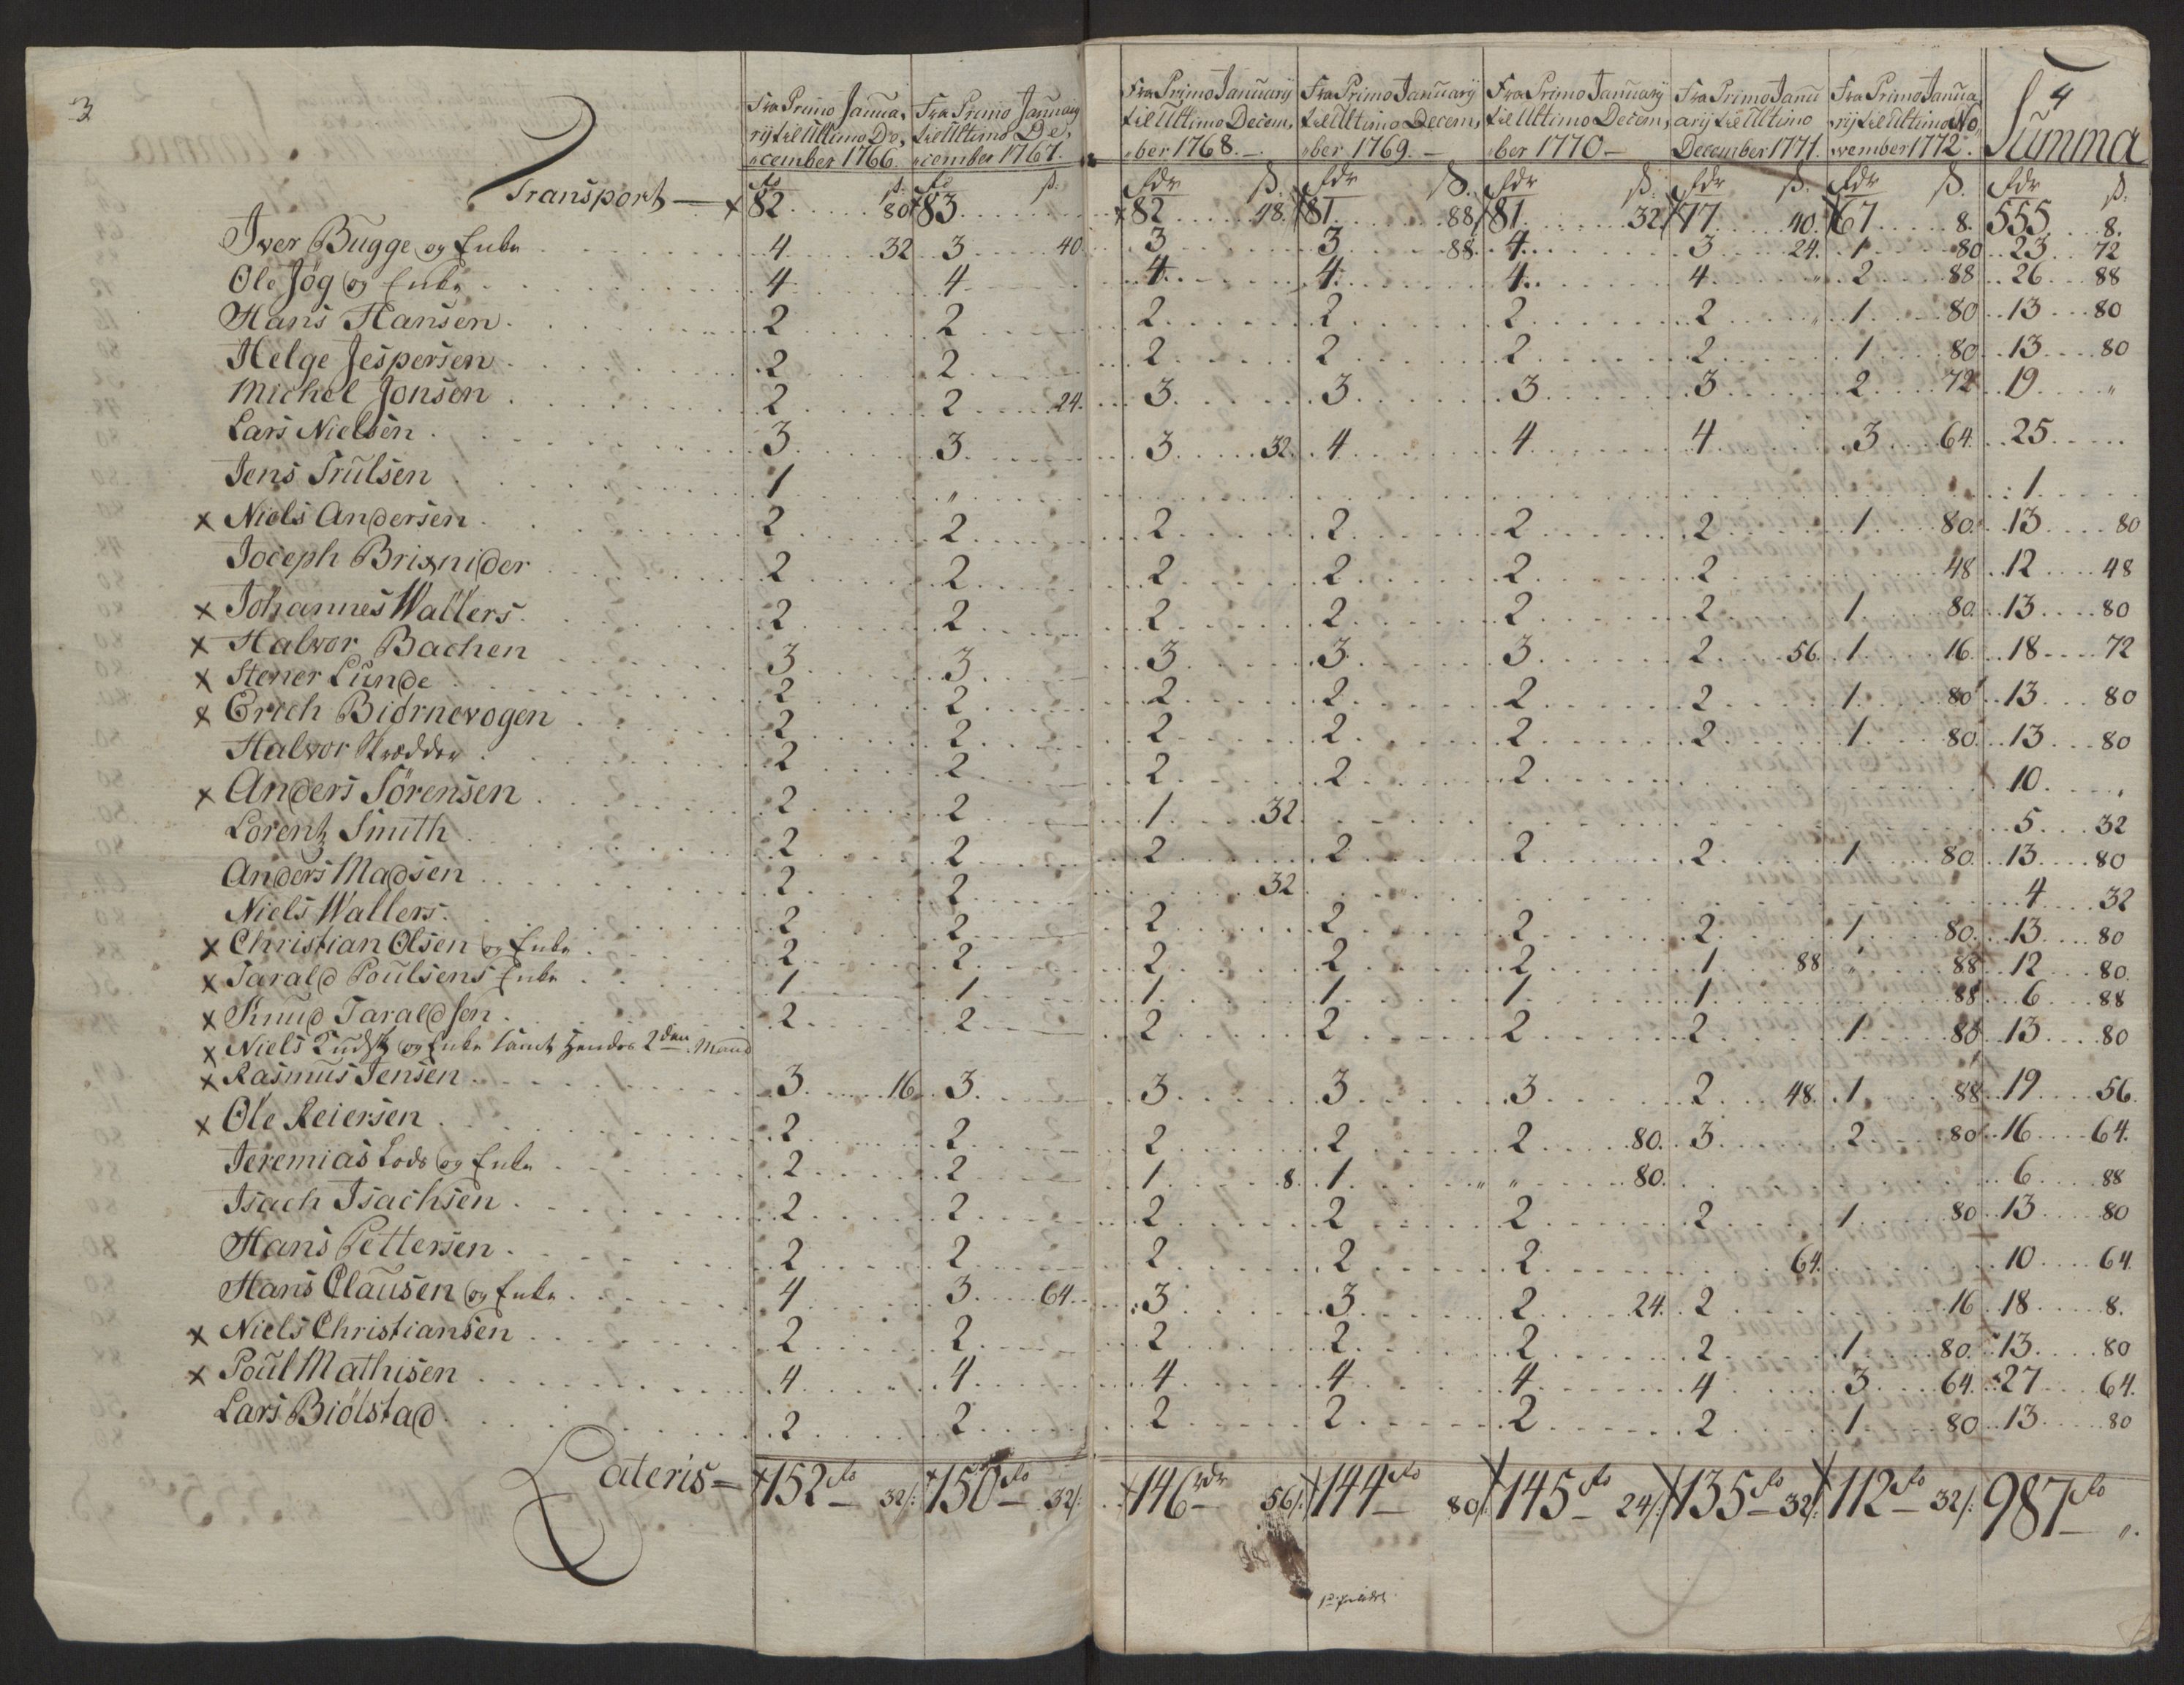 3
4
Fra Primo Janua, rij til Ultimo De, cember 1766. | Fra Primo January til Ultimo De, cember 1767. | Fra Primo January til Ultimo Decem, ber 1768. | Fra Primo January til Ultimo Decem, ber 1769. | Fra Primo January til Ultimo Decem, ber 1770 | Fra Primo Janu arij til Ultimo December 1771. | Fra Primo Janua rij til Ultimo No, vember 1772. | Summa
rdr ß. rdr ß. rdr ß. rdr ß. rdr ß. rdr ß.
Transport — x 82 80 x 83 x 82 48. x 81 88 x 81 32. x 77 40. x 67 8. 555 8.
Iver Bugge og Enke 4 32 3 40 3 3 88 4 3 24. 1 80 23 72
Ole Jøg og Enke 4 4 4 4 4 4 " 2 88 26 88
Hans Hansen 2 2 2 2 2 2 " 1 80 13 80
Helge Jespersen 2 2 2 2 2 2 1 80 13 80
Michel Jonsen 2 2 24. 3 3 3 3 2 72 19 "
Lars Nielsen 3 3 3 32. 4 4 4 3 64. 25
Jens Trulsen 1 " 1
x Niels Andersen 2 2 2 2 2 2 1 80. 13 80
Joceph Brixnider 2 2 2 2 2 2 48 12 48
x Johannes Wallers 2 2 2 2 2 2 1 80. 13 80
x Halvor Bachen 3 3 3 3 3 2 56. 1 16. 18 72
x Stener Lunde 2 2 2 2 2 2 1 80 13 80
x Erich Biørnevogen 2 2 2 2 2 2 1 80. 13 80
Halvor Skrædder 2 2 2 2 2 10
x Anders Sörensen 2 2 1 32. 5 32
Lorentz Smith 2 2 2 2 2 2 1 80. 13 80
Anders Madsen 2 2 32 4 32
Niels Wallers 2 2 2 2 2 2 1 80. 13 80
x Christian Olsen og Enke 2 2 2 2 2 1 88 " 88 12 80.
x Tarald Poulsens Enke 1 1 1 1 1 1 88 6 88
x Knud Taraldsen 2 2 2 2 2 2 1 80 13 80
x Niels Tudsk og Enke samt hendes 2den Mand
x Rasmus Jensen 3 16 3 3 3 3 2 48. 1 88 19 56.
x Ole Reiersen 2 2 2 2 2 80. 3 2 80 16 64.
Jeremias Lods og Enke 2 2 1 8. 1 " " 80. 6 88
Isach Isachsen 2 2 2 2 2 2 1 80 13 80
Hans Pettersen 2 2 2 2 2 64. 10 64.
Hans Clausen og Enke 4 3 64 3 3 2 24. 2 16 18 8.
x Niels Christiansen 2 2 2 2 2 2 1 80. 13 80
x Poul Mathisen 4 4 4 4 4 4 3 64. 27 64.
Lars Biölstad 2 2 2 2 2 2 1 80 13 80
Lateris = x 152 rdr 32ß: x 150 rdr 32ß x 146 rdr 56ß: x 144 rdr 80ß: x 145 rdr 24ß: x 135 rdr 32ß: x 112 rdr 32ß: 987 rdr ".